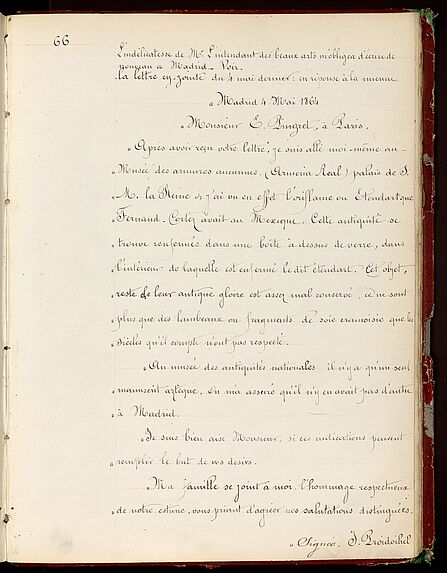 66
L'indélicatesse de Mr L'intendant des beaux arts m'obligea d'écrire de
nouveau à Madrid - Voir.
la lettre cy-jointe du 4 mai dernier: en réponse à la mienne
" Madrid 4 Mai 1864
" Monsieur E. Pingret, à Paris.
" Après avoir reçu votre lettre, je suis allé moi-même au
" Musée des armures anciennes, (Armeria Real) palais de S.
" M. la Reine & j'ai vu en effet l'oriflame ou Etendart que
" Fernand-Cortez avait au Mexique. Cette antiquité se
" trouve renfermée dans une boîte à dessus de verre, dans
" l'intérieur de laquelle est enfermé le dit étendart. Cet objet,
" reste de leur antique gloire est assez mal conservé, ce ne sont
" plus que des lambeaux ou fragments de soie cramoisie que les
" siècles qu'il compte n'ont pas respecté.
" Au musée des antiquités nationales il n'y a qu'un seul
" manuscrit aztèque. On m'a assuré qu'il n'y en avait pas d'autre
" à Madrid.
" Je suis bien aise Monsieur, si ces indications peuvent
" remplir le but de vos desirs.
" Ma famille se joint à moi, l'hommage respectueux
" de notre estime, vous priant d'agréer nos salutations distinguées.
" Signé, J.